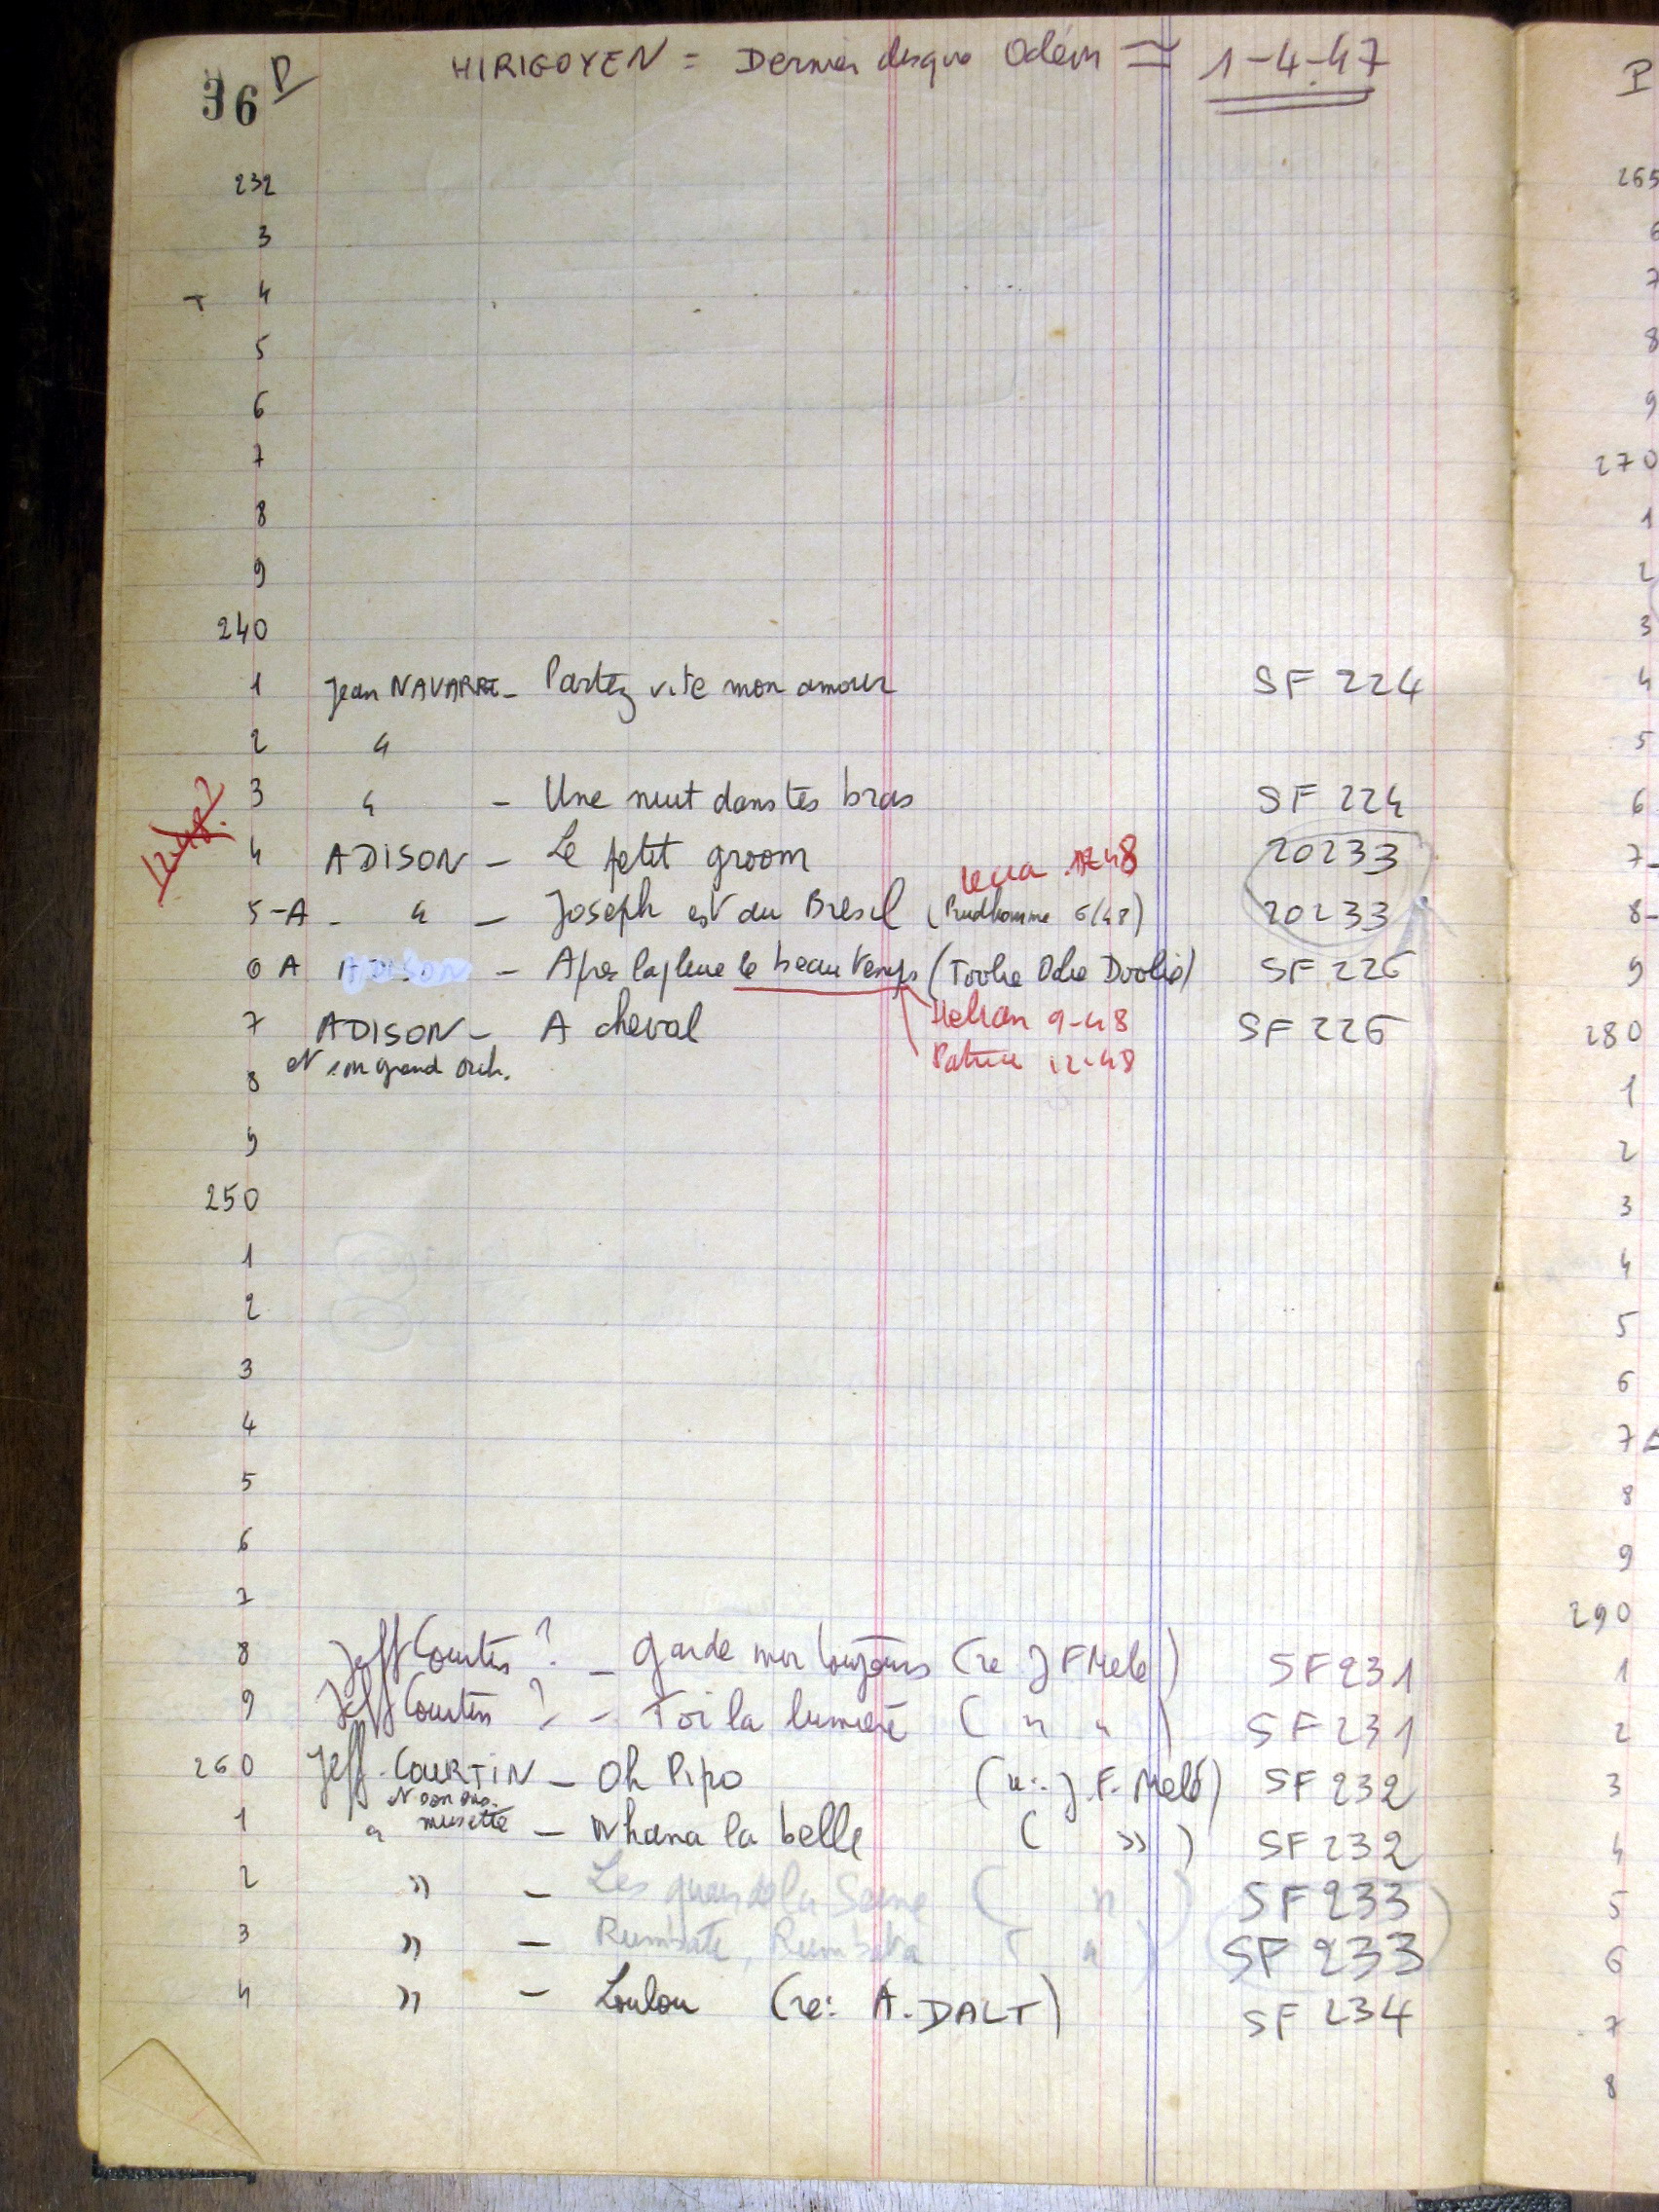 36 P HIRIGOYEN = Dernier disque Odéon = 1-4-47
232
3
4
5
6
7
8
9
240
1 Jean NAVARRE - Partez vite mon amour SF 224
2 "
3 " - Une nuit dans tes bras SF 224
4 ADISON - Le petit groom 20233
5-A - " - Joseph est au Brésil (Prudhomme 6/48) 20233
6 A ADISON - Apres la pluie le beau temps (Toolie Oolie Doolie) SF 226
7 ADISON - A cheval SF 226
Helian 9-48
8 et son grand orch.
Patrice 12-48
9
250
1
2
3
4
5
6
7
8 Jeff Courtin ? - Garde moi toujours (re J F Mele) SF 231
9 Jeff Courtin ? - Toi la lumière ( " " ) SF 231
260 Jeff COURTIN - Oh Pipo (re: J. F. Melé) SF 232
et son ens.
1 " musette - Whana la belle ( » ) SF 232
2 » - Les quais de la Seine ( " ) SF 233
3 » - ( " ) SF 233
4 » - Loulou (re: A. DALT) SF 234
P
265
6
7
8
9
270
1
2
3
4
5
6
7-
8-
9
280
1
2
3
4
5
6
7 A
8
9
290
1
2
3
4
5
6
7
8